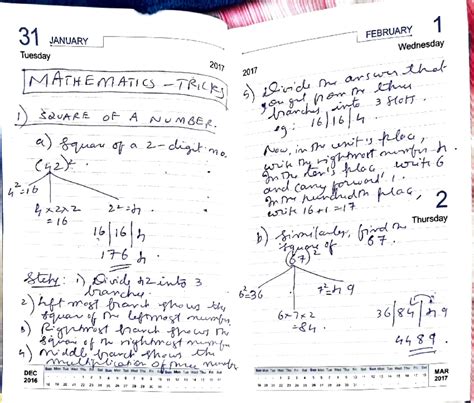 31 JANUARY
Tuesday
2017
MATHEMATICS - TRICKS
1) SQUARE OF A NUMBER.
a) Square of a 2-digit no.
(42)²
4²=16
4x2x2
=16
2²=4
16|16|4
1764
Steps: 1) Divide 42 into 3
branches.
2) Left most branch shows the
square of the leftmost number
3) Rightmost branch shows the
square of the rightmost number
4) Middle branch shows the
multiplication of three numbers
DEC
2016
FEBRUARY 1
Wednesday
2017
5) Divide the answer that
you get from the three
branches into 3 slots.
eg: 16|16|4
Now, in the unit's place,
write the rightmost number 4.
In the ten's place, write 6
and carry forward 1.
In the hundredth place,
write 16+1=17
2
Thursday
b) Similarly, find the
square of 67.
(67)²
6²=36
6x7x2
=84
7²=49
36|84|49
4489
MAR
2017